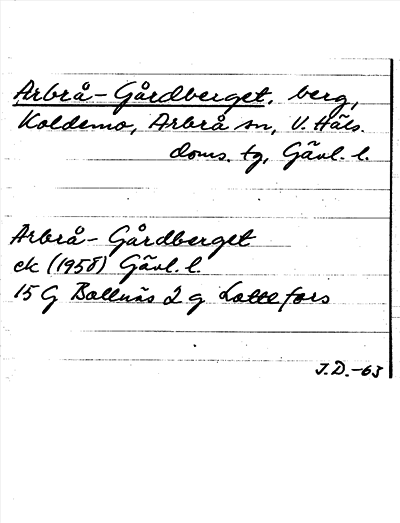 Arbrå-Gårdberget, berg,
Koldemo, Arbrå sn, V. Häls.
doms. tg, Gävl. l.
Arbrå-Gårdberget
ek (1958) Gävl. l.
15 G Bollnäs 2 g Lottefors
J.D.-63